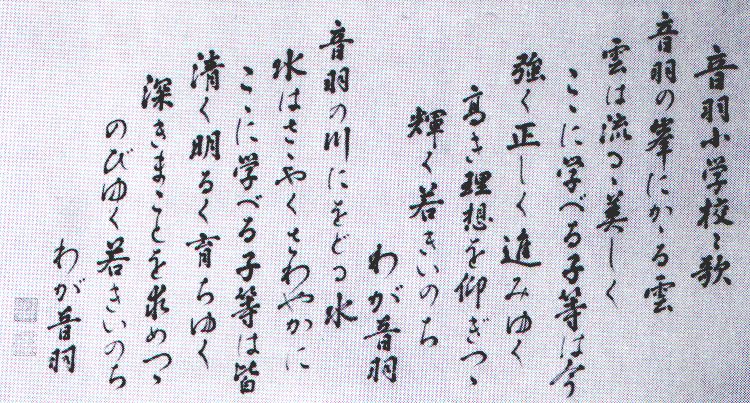 音羽小学校々歌
音羽の峯にかゝる雲
雲は流るゝ美しく
こゝに学べる子等は今
強く正しく進みゆく
高き理想を仰ぎつゝ
輝く若きいのち
わが音羽
音羽の川にをどる水
水はさゝやくさわやかに
こゝに学べる子等は皆
清く明るく育ちゆく
深きまことを求めつゝ
のびゆく若きいのち
わが音羽